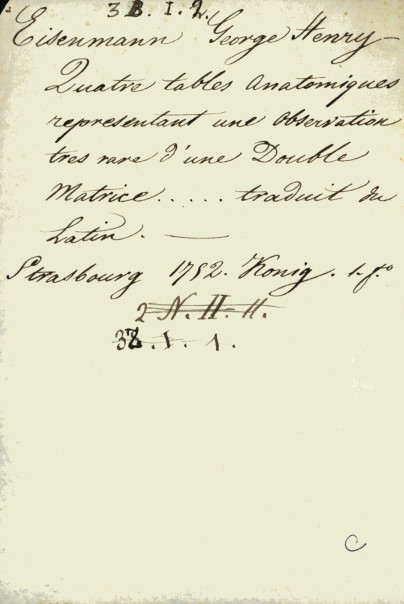 3 B. I. 2.
Eisenmann George Henry –
Quatre tables Anatomiques
representant une Observation
tres rare d'une Double
Matrice ..... traduit du
Latin. —
Strasbourg 1752. Konig. 1. fo
2 N. II. 11.
38. 1. 1.
C